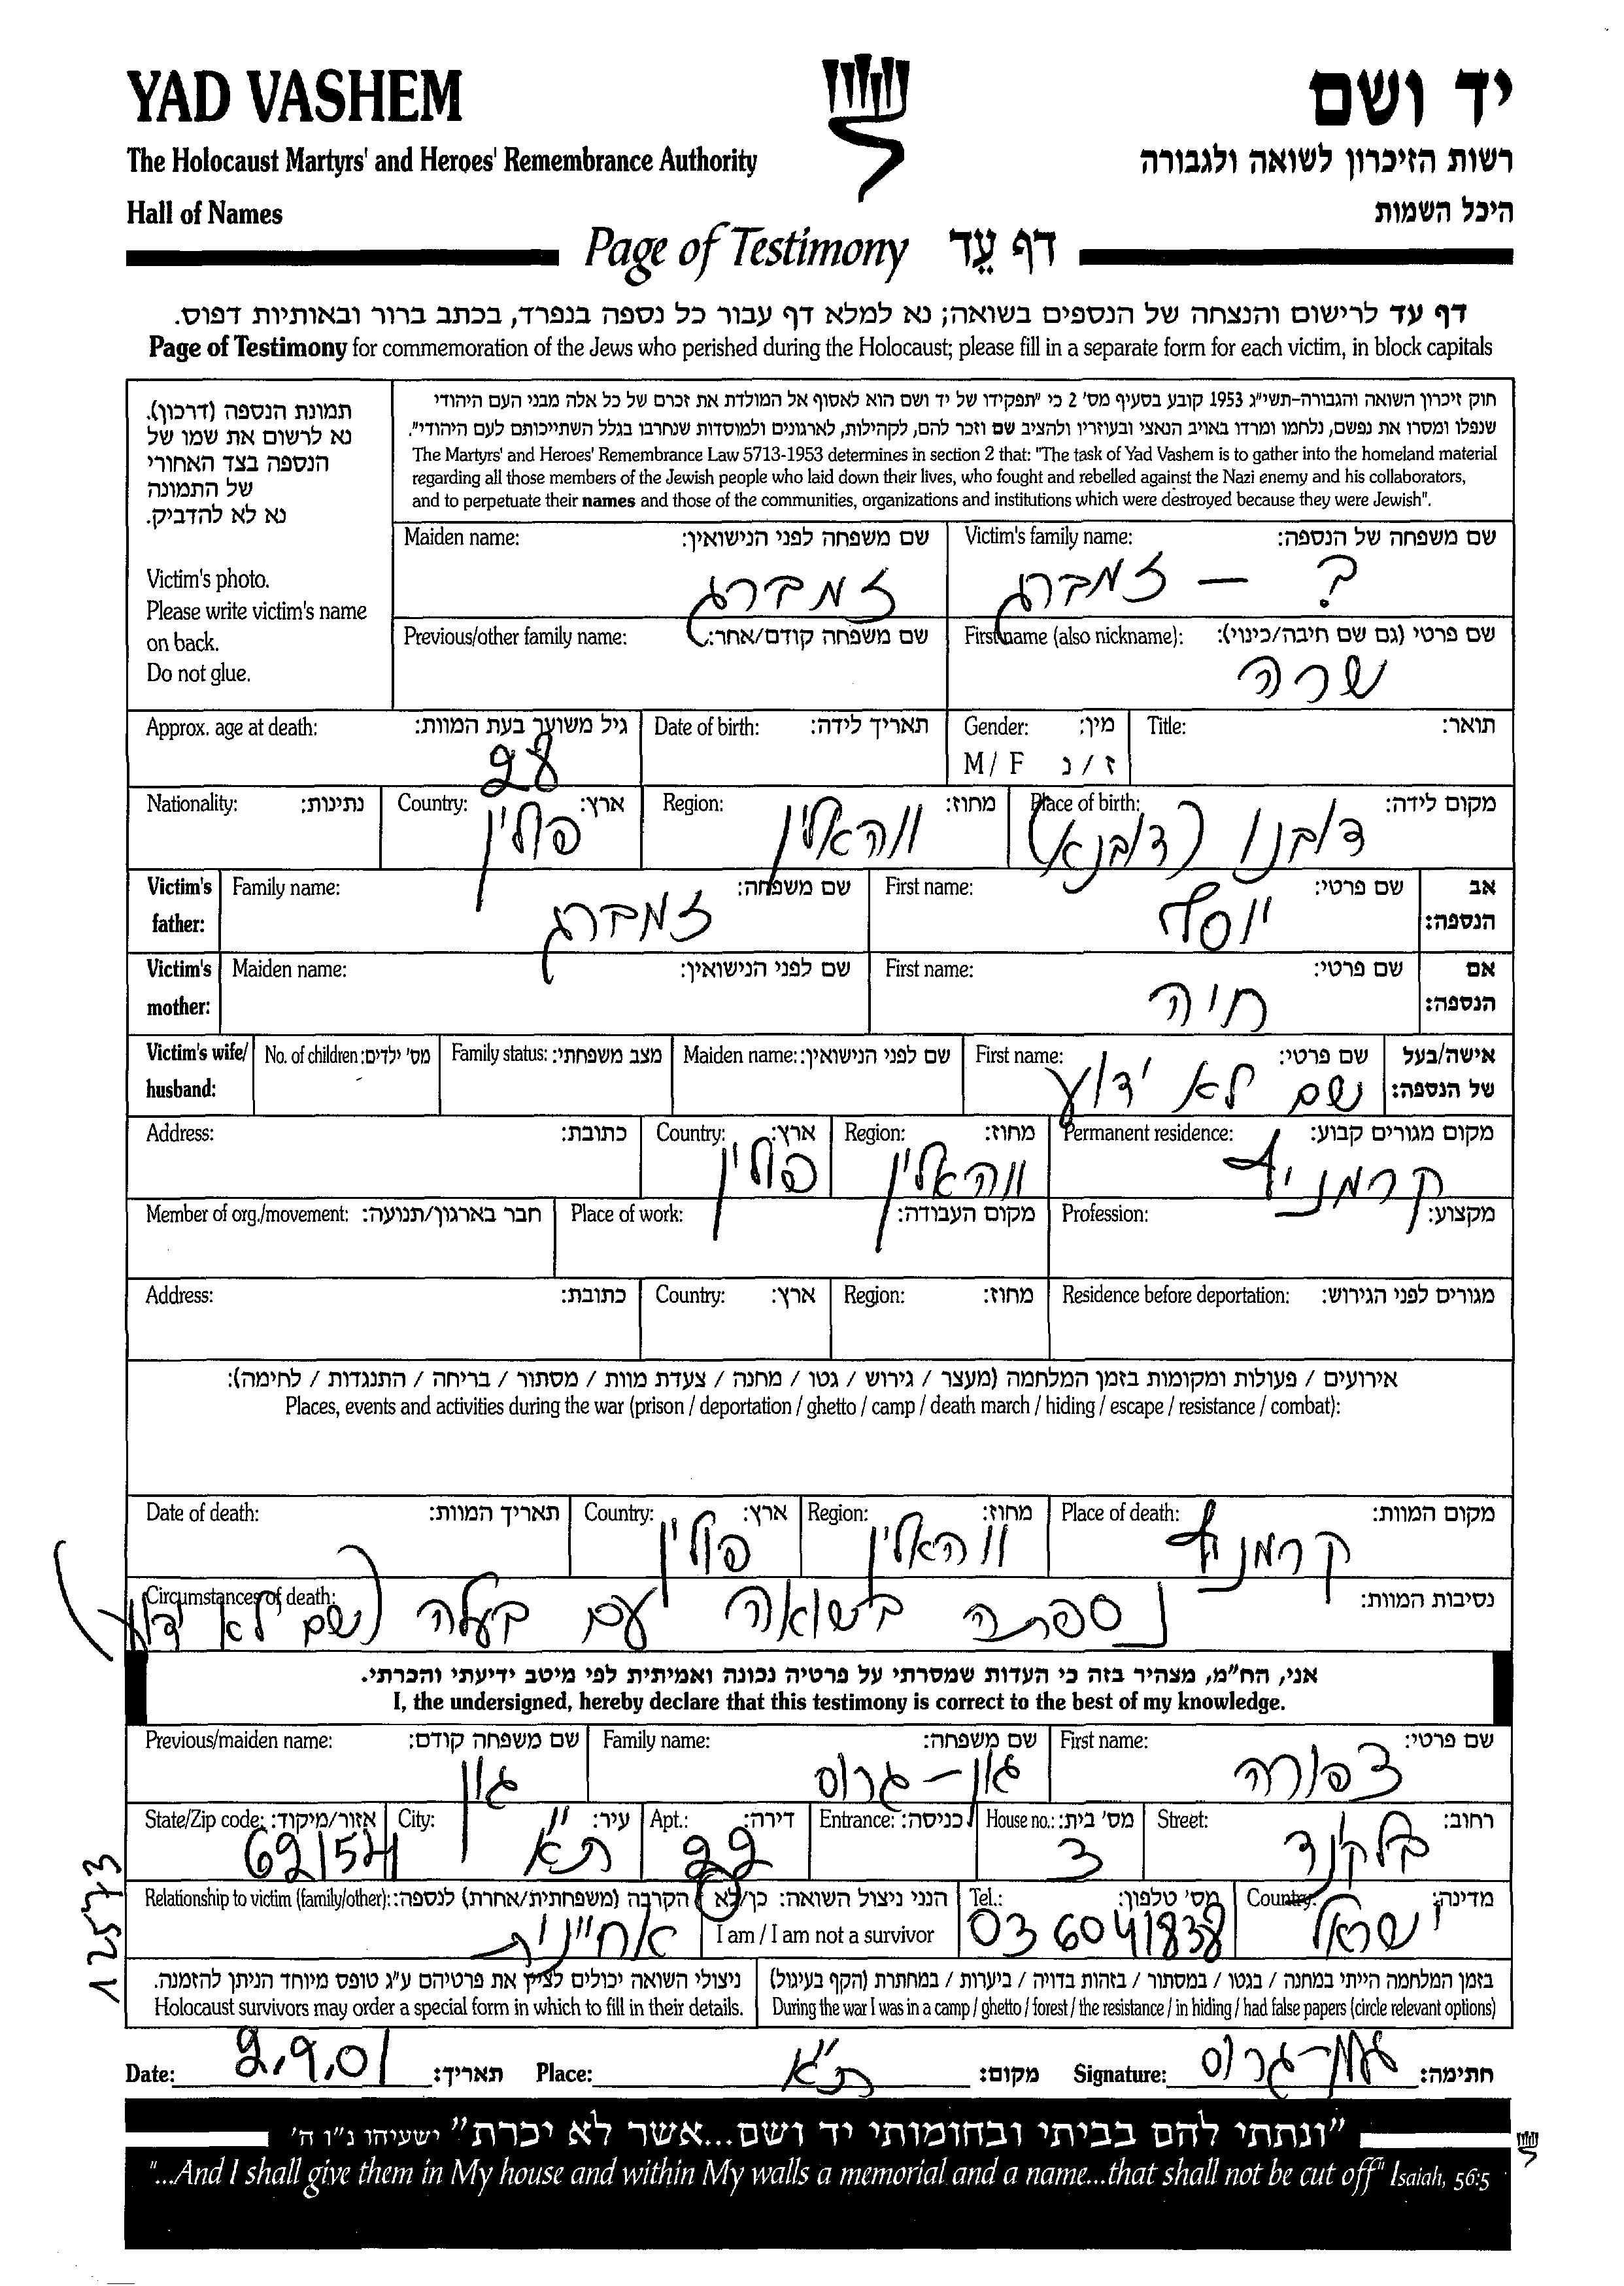 YAD VASHEM
יד ושם
The Holocaust Martyrs' and Heroes' Remembrance Authority
רשות הזיכרון לשואה ולגבורה
Hall of Names
היכל השמות
Page of Testimony דף עֵד
דף עד לרישום והנצחה של הנספים בשואה; נא למלא דף עבור כל נספה בנפרד, בכתב ברור ובאותיות דפוס.
Page of Testimony for commemoration of the Jews who perished during the Holocaust; please fill in a separate form for each victim, in block capitals
תמונת הנספה (דרכון).
נא לרשום את שמו של
הנספה בצד האחורי
של התמונה
נא לא להדביק.
Victim's photo.
Please write victim's name
on back.
Do not glue.
חוק זיכרון השואה והגבורה-תשי"ג 1953 קובע בסעיף מס' 2 כי "תפקידו של יד ושם הוא לאסוף אל המולדת את זכרם של כל אלה מבני העם היהודי
שנפלו ומסרו את נפשם, נלחמו ומרדו באויב הנאצי ובעוזריו ולהציב שם וזכר להם, לקהילות, לארגונים ולמוסדות שנחרבו בגלל השתייכותם לעם היהודי".
The Martyrs' and Heroes' Remembrance Law 5713-1953 determines in section 2 that: "The task of Yad Vashem is to gather into the homeland material
regarding all those members of the Jewish people who laid down their lives, who fought and rebelled against the Nazi enemy and his collaborators,
and to perpetuate their names and those of the communities, organizations and institutions which were destroyed because they were Jewish".
שם משפחה של הנספה: Victim's family name:
? – זמברג
שם משפחה לפני הנישואין: Maiden name:
זמברג
שם פרטי (גם שם חיבה/כינוי): First name (also nickname):
שרה
שם משפחה קודם/אחר: Previous/other family name:
תואר: Title:
מין: Gender:
ז / נ M / F
תאריך לידה: Date of birth:
גיל משוער בעת המוות: Approx. age at death:
28
מקום לידה: Place of birth:
דובנו (דובנא)
מחוז: Region:
ווהאלין
ארץ: Country:
פולין
נתינות: Nationality:
אב הנספה: Victim's father:
שם פרטי: First name:
יוסף
שם משפחה: Family name:
זמברג
אם הנספה: Victim's mother:
שם פרטי: First name:
חיה
שם לפני הנישואין: Maiden name:
אישה/בעל של הנספה: Victim's wife/ husband:
שם פרטי: First name:
שם לא ידוע
שם לפני הנישואין: Maiden name:
מצב משפחתי: Family status:
מס' ילדים: No. of children:
מקום מגורים קבוע: Permanent residence:
קרמניץ
מחוז: Region:
ווהאלין
ארץ: Country:
פולין
כתובת: Address:
מקצוע: Profession:
מקום העבודה: Place of work:
חבר בארגון/תנועה: Member of org./movement:
מגורים לפני הגירוש: Residence before deportation:
מחוז: Region:
ארץ: Country:
כתובת: Address:
אירועים / פעולות ומקומות בזמן המלחמה (מעצר / גירוש / גטו / מחנה / צעדת מוות / מסתור / בריחה / התנגדות / לחימה):
Places, events and activities during the war (prison / deportation / ghetto / camp / death march / hiding / escape / resistance / combat):
מקום המוות: Place of death:
קרמניץ
מחוז: Region:
ווהאלין
ארץ: Country:
פולין
תאריך המוות: Date of death:
נסיבות המוות: Circumstances of death:
נספתה בשואה עם בעלה (שם לא ידוע)
אני, הח"מ, מצהיר בזה כי העדות שמסרתי על פרטיה נכונה ואמיתית לפי מיטב ידיעתי והכרתי.
I, the undersigned, hereby declare that this testimony is correct to the best of my knowledge.
שם פרטי: First name:
צפורה
שם משפחה: Family name:
און-גרוס
שם משפחה קודם: Previous/maiden name:
און
רחוב: Street:
בלקינד
מס' בית: House no.:
3
כניסה: Entrance:
דירה: Apt.:
22
עיר: City:
ת"א
אזור/מיקוד: State/Zip code:
62154
מדינה: Country:
ישראל
מס' טלפון: Tel.:
03 6041838
הנני ניצול השואה: כן/לא
I am / I am not a survivor
הקרבה (משפחתית/אחרת) לנספה: Relationship to victim (family/other):
אחיינית
בזמן המלחמה הייתי במחנה / בגטו / במסתור / בזהות בדויה / ביערות / במחתרת (הקף בעיגול)
During the war I was in a camp / ghetto / forest / the resistance / in hiding / had false papers (circle relevant options)
ניצולי השואה יכולים לציין את פרטיהם ע"ג טופס מיוחד הניתן להזמנה.
Holocaust survivors may order a special form in which to fill in their details.
חתימה: און-גרוס Signature:
מקום: ת"א Place:
תאריך: 2.9.01 Date:
"ונתתי להם בביתי ובחומותי יד ושם...אשר לא יכרת" ישעיהו נ"ו ה'
"...And I shall give them in My house and within My walls a memorial and a name...that shall not be cut off" Isaiah, 56:5
12573